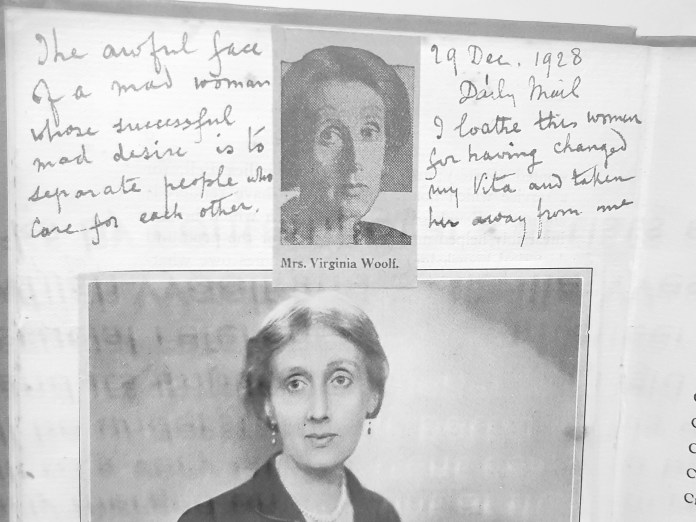 The awful face
of a mad woman
whose successful
mad desire is to
separate people who
care for each other.
Mrs. Virginia Woolf.
29 Dec. 1928
Daily Mail
I loathe this woman
for having changed
my Vita and taken
her away from me